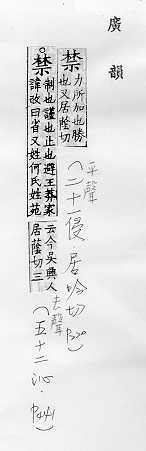 廣韻
禁力所加也勝
也又居蔭切
(二十一侵·居吟切 P220)
平聲
禁制也謹也止也避王莽家
諱改曰省又姓何氏姓苑
云今吳興人
居蔭切三
去聲
(五十二沁·P441)